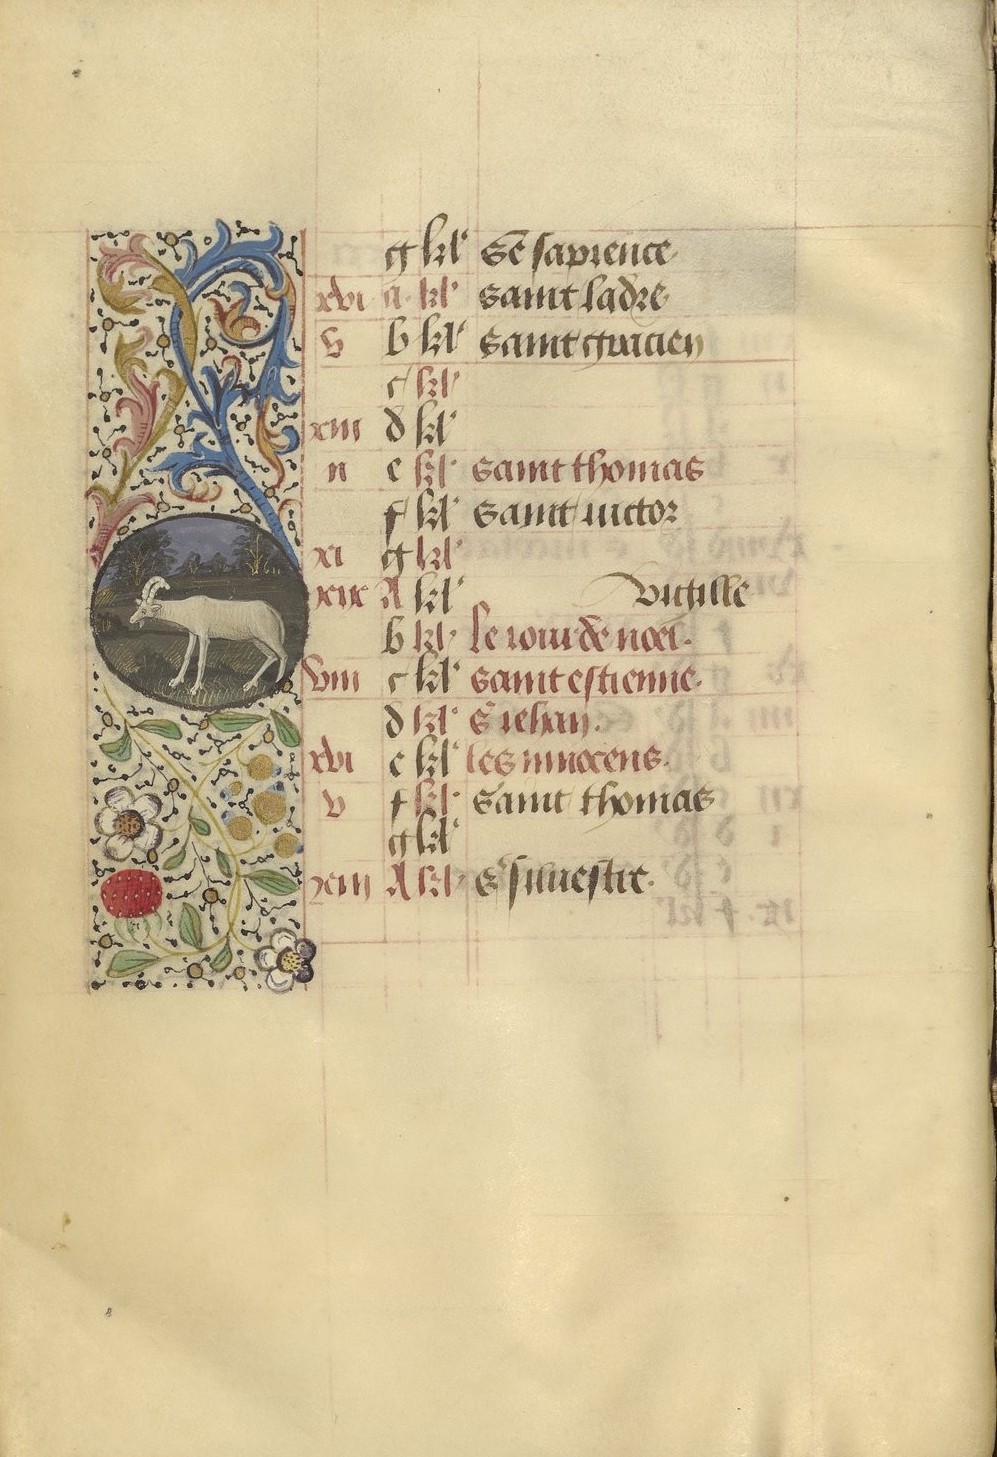 g kl' Se sapience
xvi a kl' saint ladre
v b kl' saint gracien
c kl'
xiii d kl'
ii e kl' saint thomas
f kl' saint victor
g kl'
A kl' vigille
b kl' le iour de noel
viii c kl' saint estienne
d kl' S iehan
xvi e kl' les innocens
v f kl' saint thomas
g kl'
xiii A kl' S siluestre